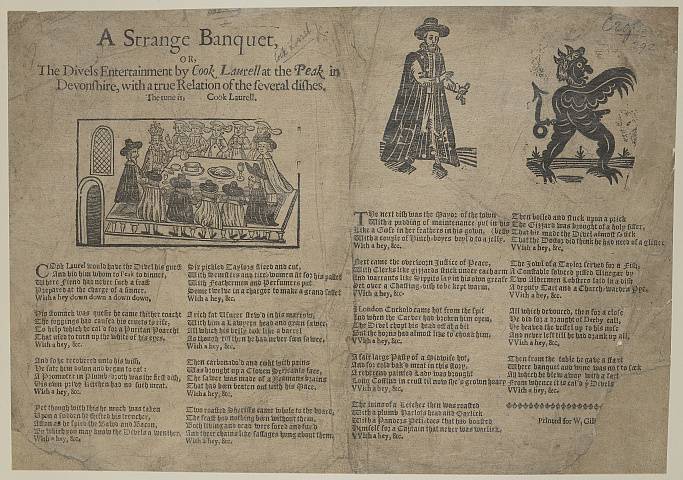 A Strange Banquet,
OR,
The Divels Entertainment by Cook Laurell at the Peak in
Devonshire, with a true Relation of the several dishes.
The tune is, Cook Laurell.
Cook Laurel would have the Divel his guest
And bid him whom to dinner,
Where Fiend had never such a feast
Prepared at the charge of a sinner.
With a hey down down a down down,
His stomack was queesie he came thither coacht
The joggings had caused his cruets to rise,
To help which he cal'd for a Puritan poacht
That used to turn up the white of his eyes,
With a hey, &c.
And so he recovered unto his wish,
He sate him down and began to eat:
A Promooter in Plumb broth was the first dish,
His own privy Kitchen had no such meat.
With a hey, &c.
Yet though with this he much was taken
Upon a sudden he shifted his trencher,
Assoon as he spied the Bawd and Bacon,
By which you may know the Divel's a wencher.
With a hey, &c.
Six pickled Taylors sliced and cut,
With Semsters and tire-women fit for his pallet
With Feathermen and Perfumers put
Some twelve in a charger to make a grand sallet
With a hey, &c.
A rich fat Usurer stew'd in his marrow,
With him a Lawyers head and green sawce,
All which his belly took like a barrel
As though till then he had never seen sawce,
With a hey, &c.
Then carbonado'd and cookt with pains
Was brought up a Cloven Serjeants face,
The sawce was made of a Yeomans brains
That had been beaten out with his Mace,
With a hey, &c.
Two roasted Sheriffs came whole to the board,
The feast had nothing been without them,
Both living and dead were foxed and fur'd
And their chains like sassages hung about them,
With a hey, &c.
The next dish was the Mayor of the town
With a pudding of maintenance put in his belly
Like a Goose in her feathers in his gown,
With a couple of Hinch-boyes boyl'd to a jelly.
With a hey, &c.
Next came the overworn Justice of Peace,
With Clerks like gizzards stuck under each arm
And warrants like Sippits lay in his own grease
Set over a Chaffing-dish to be kept warm,
VVith a hey, &c.
A London Cuckold came hot from the spit
And when the Carver had broken him open,
The Divel chopt his head off at a bit
But the horns had almost like to choak him,
VVith a hey, &c.
A fair large Pasty of a Midwife hot,
And for cold bak'd meat in this story,
A reverend painted Lady was brought
Long Coffin'd in crust til now she's grown hoary
VVith a hey, &c.
The loins of a Letcher then was roasted
With a plumb Harlots head and Garlick
With a Panders Petitoes that had boasted
Himself for a Captain that never was warlick,
VVith a hey, &c.
Then boiled and stuck upon a prick
The Gizzard was brought of a holy sister,
That bit made the Divel almost so sick
That the Doctor did think he had need of a glister
VVith a hey, &c.
The Jowl of a Jaylor served for a Fish,
A Constable sowced pissed Vinegar by
Two Aldermen Lobsters laid in a dish
A Deputy Tart and a Church-warden Pye,
VVith a hey, &c.
All which devoured, then for a close
He did for a draught of Derby call,
He heaved the vessel up to his nose
And never left till he had drank up all
VVith a hey, &c.
Then from the table he gave a start
Where banquet and wine was not to seek
All which he blew away with a
From whence it is cal'd
VVith a hey, &c.
Printed for W. Gil